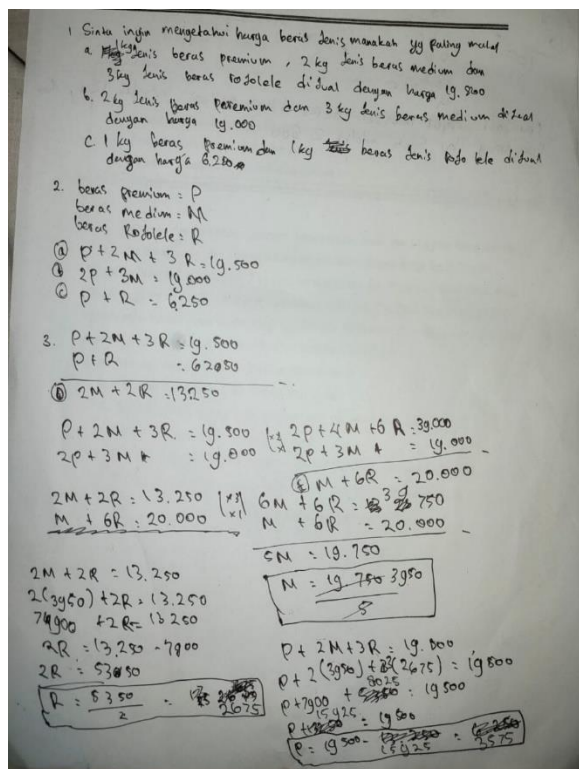 1 Sinta ingin mengetahui harga beras Jenis manakah yg paling mahal
a. 1kg Jenis beras premium, 2 kg Jenis beras medium dan
3kg Jenis beras rojolele dijual dengan harga 19.500
b. 2 kg Jenis beras premium dan 3 kg Jenis beras medium dijual
dengan harga 19.000
C. 1 kg beras premium dan 1 kg beras Jenis Rojo lele dijual
dengan harga 6.250
2. beras premium : P
beras medium : M
beras Rojolele : R
ⓐ P + 2M + 3R = 19.500
ⓑ 2P + 3M = 19.000
ⓒ P + R = 6250
3. P + 2M + 3R = 19.500
P + R = 62050
ⓓ 2M + 2R = 13250
P + 2M + 3R = 19.500 |x2 2P + 4M + 6R = 39.000
2P + 3M = 19.000 |x1 2P + 3M = 19.000
M + 6R = 20.000
2M + 2R = 13.250 |x3 6M + 6R = 39 750
M + 6R = 20.000 |x1 M + 6R = 20.000
5M = 19.750
M = 19 750 3950
5
2M + 2R = 13.250
2(3950) + 2R = 13.250
7900 + 2R = 13250
2R = 13.250 - 7900
2R =
R = 5350 = 2675
2
P + 2M + 3R = 19.500
P + 2(3950) + 3(2675) = 19500
P + 7900 + 8025 = 19500
P + 15925 = 19500
P = 19500 - 15925 = 3575